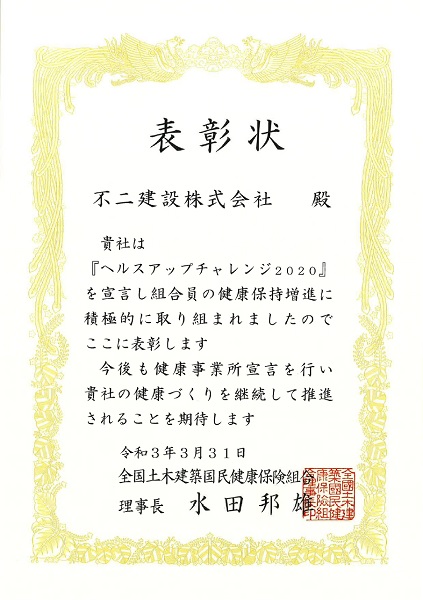 表彰状
不二建設株式会社　殿
貴社は
『ヘルスアップチャレンジ2020』
を宣言し組合員の健康保持増進に
積極的に取り組まれましたので
ここに表彰します
今後も健康事業所宣言を行い
貴社の健康づくりを継続して推進
されることを期待します
令和3年3月31日
全国土木建築国民健康保険組合
理事長　水田邦雄
全國土木建
築國民健
康保険組
合理事印